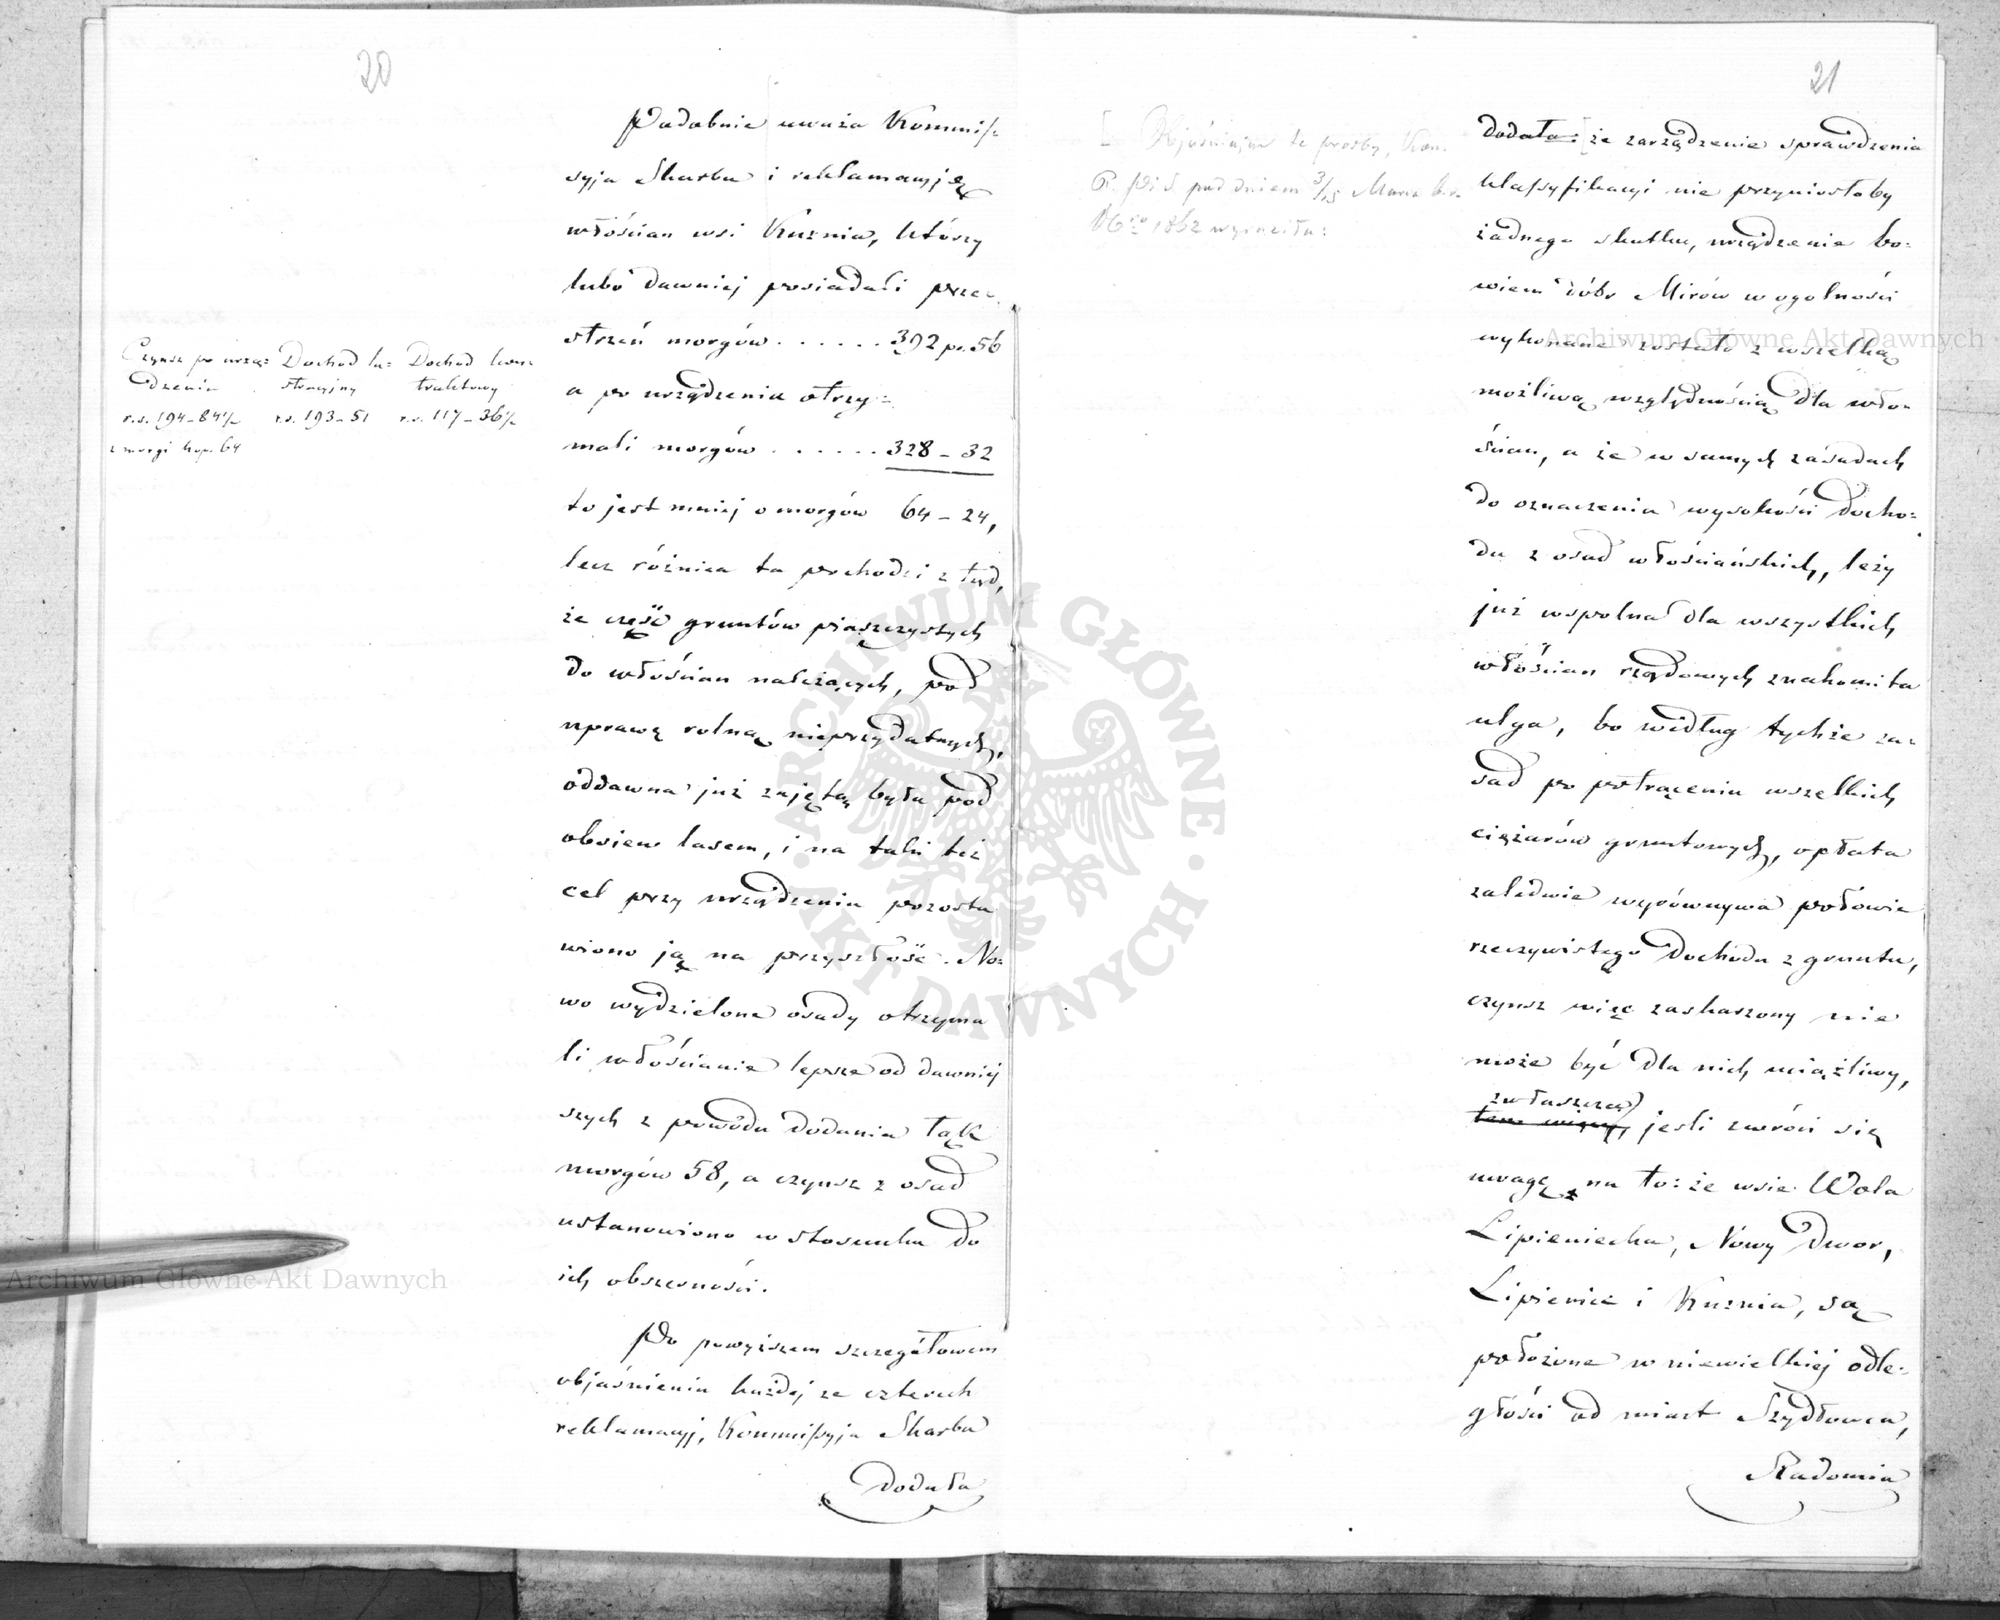 20
Podobnie uważa Kommis-
syja Skarbu i reklamacyję
włościan wsi Kuźnia, którzy
lubo dawniej posiadali prze-
strzeń morgów . . . . . . 392 pr. 56
a po urządzeniu otrzy=
mali morgów . . . . . . 328 – 32
to jest mniej o morgów 64 – 24,
lecz różnica ta pochodzi z tąd,
że część gruntów piaszczystych
do włościan należących, pod
uprawę rolną nieprzydatnych,
oddawna już zajętą była pod
obsiew lasem, i na taki też
cel przy urządzeniu pozosta
wiono ją na przyszłość. No=
wo wydzielone osady otrzyma
li włościanie lepsze od dawniej
szych z powodu dodania łąk
morgów 58, a czynsz z osad
ustanowiono w stosunku do
ich obszerności.
Po powyższem szczegółowem
objaśnieniu każdej ze czterech
reklamacyj, Kommissyja Skarbu
dodała
Czynsz po urzą=
dzeniu
r.s. 194 – 84½
z morgi kop. 64
Dochód lu=
stracyjny
r.s. 193 – 51
Dochód kon=
traktowy
r.s. 117 – 36½
21
[ Objaśniając te prośby, Kom.
R. P. i S. pod dniem 3/15 Marca b.r.
1862 wyraziła:
dodała: [że zarządzenie sprawdzenia
klassyfikacyi nie przyniosłoby
żadnego skutku, urządzenie bo=
wiem dóbr Mirów w ogolności
wykonane zostało z wszelką
możliwą względnością dla wło=
ścian, a że w samych zasadach
do oznaczenia wysokości docho=
du z osad włościańskich, leży
już wspolna dla wszystkich
włościan rządowych znakomita
ulga, bo według tychże za=
sad po potrąceniu wszelkich
ciężarów gruntowych, opłata
zaledwie wyrównywa połowie
rzeczywistego dochodu z gruntu,
czynsz więc zaskarzony nie
może być dla nich uciążliwy,
zwłaszcza
tem więcej, jesli zwróci się
uwagę na to: że wsie Wola
Lipieniecka, Nowy Dwor,
Lipienice i Kuźnia, są
położone w niewielkiej odle=
głości od miast Szydłowca,
Radomia
Archiwum Główne Akt Dawnych
Archiwum Główne Akt Dawnych
ARCHIWUM GŁÓWNE · AKT DAWNYCH ·